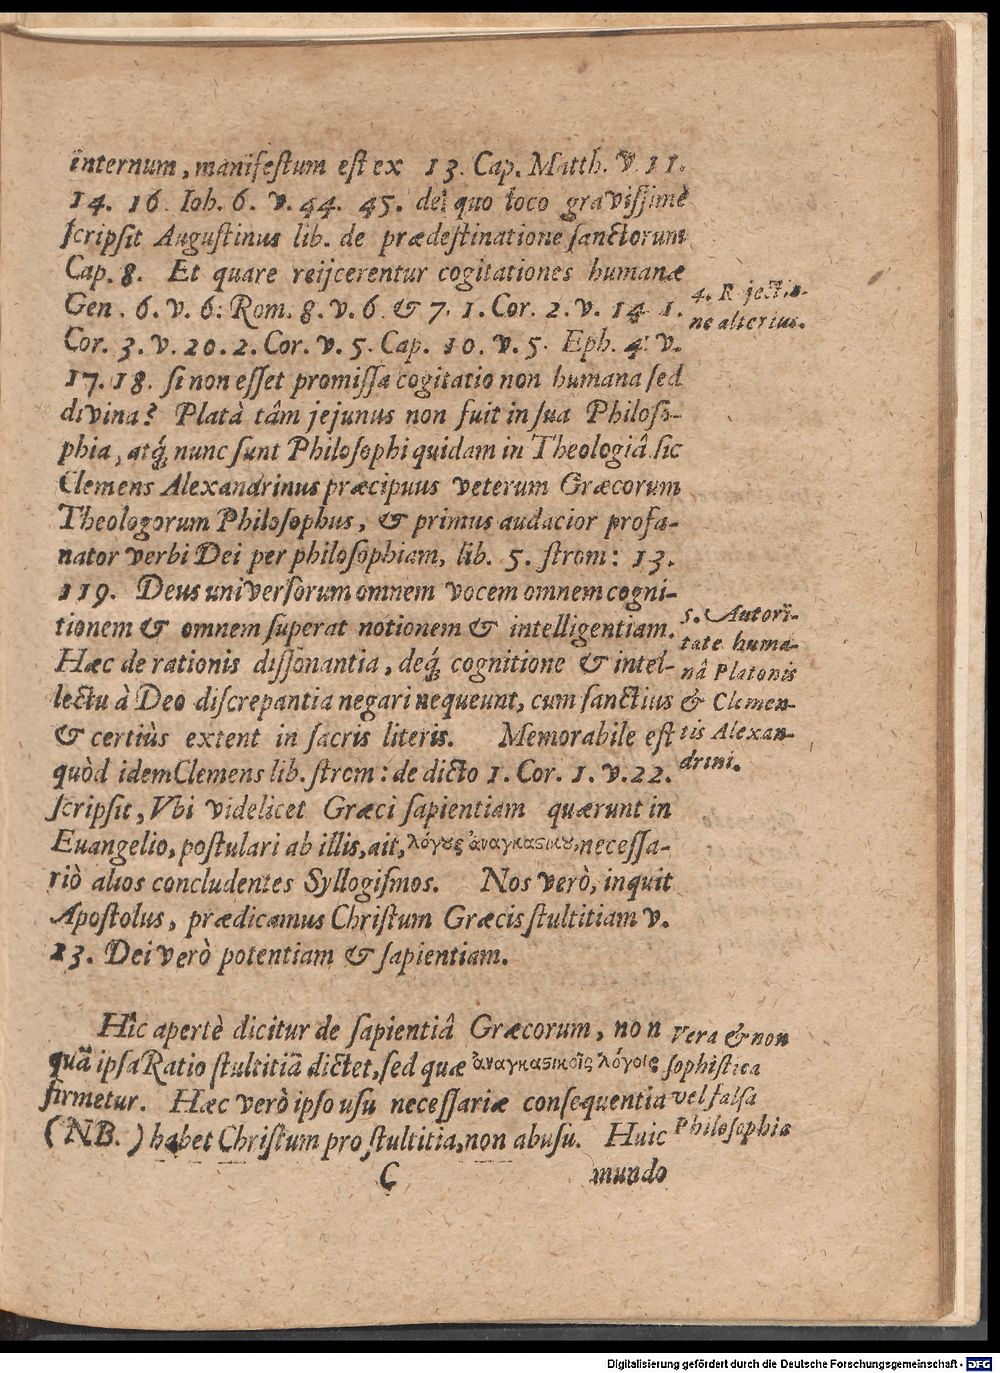 internum, manifeſtum eſt ex 13. Cap. Matth. v. 11.
14. 16. Ioh. 6. v. 44. 45. de quo loco graviſſimè
ſcripſit Auguſtinus lib. de prædeſtinatione ſanctorum
Cap. 8. Et quare reijcerentur cogitationes humanæ
Gen. 6. v. 6. Rom. 8. v. 6. & 7. 1. Cor. 2. v. 14. 1.
Cor. 3. v. 20. 2. Cor. v. 5. Cap. 10. v. 5. Eph. 4. v.
17. 18. ſi non eſſet promiſſa cogitatio non humana ſed
divina? Platò tâm jejunus non fuit in ſua Philoſo-
phia, atq́; nunc ſunt Philoſophi quidam in Theologiâ ſic
Clemens Alexandrinus præcipuus veterum Græcorum
Theologorum Philoſophus, & primus audacior profa-
nator verbi Dei per philoſophiam, lib. 5. ſtrom: 13.
119. Deus univerſorum omnem vocem omnem cogni-
tionem & omnem ſuperat notionem & intelligentiam.
Hæc de rationis diſſonantia, deq́; cognitione & intel-
lectu à Deo diſcrepantia negari nequeunt, cum ſanctius
& certiùs extent in ſacris literis. Memorabile eſt
quòd idem Clemens lib. ſtrom: de dicto 1. Cor. 1. v. 22.
ſcripſit, Vbi videlicet Græci ſapientiam quærunt in
Euangelio, poſtulari ab illis, ait, λόγȣς ἀναγκαϛικȣ, neceſſa-
riò alios concludentes Syllogiſmos. Nos verò, inquit
Apoſtolus, prædicamus Chriſtum Græcis ſtultitiam v.
23. Dei verò potentiam & ſapientiam.
Hîc apertè dicitur de ſapientiâ Græcorum, non
quã ipſa Ratio ſtultitiã dictet, ſed quæ ἀναγκαϛικοῖς λόγοις
firmetur. Hæc verò ipſo uſu neceſſariæ conſequentia
(NB.) habet Chriſtum pro ſtultitia, non abuſu. Huic
C
mundo
4. Rejectio-
ne alterius.
5. Autori-
tate huma-
nâ Platonis
& Clemen-
tis Alexan-
drini.
Vera & non
ſophiſtica
vel falſa
Philoſophia
Digitalisierung gefördert durch die Deutsche Forschungsgemeinschaft - DFG